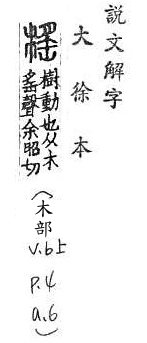 說文解字
大徐本
榣 樹動也从木
䍃聲余昭切
(木部
v.6上
p.4
a.6)